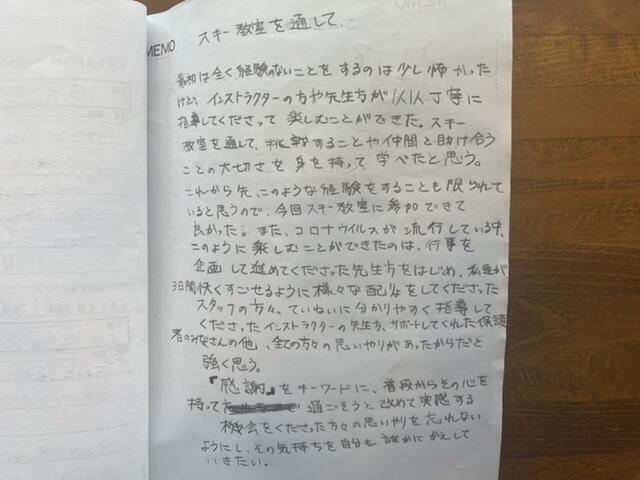 MEMO
スキー教室を通して、
最初は全く経験のないことをするのは少し怖かった
けど、インストラクターの方や先生方が1人1人丁寧に
指導してくださって楽しむことができた。スキー
教室を通して、挑戦することや仲間と助け合う
ことの大切さを身を持って学べたと思う。
これから先、このような経験をすることも限られて
いると思うので、今回スキー教室に参加できて
良かった。また、コロナウイルスが流行している中、
このように楽しむことができたのは、行事を
企画して進めてくださった先生方をはじめ、私達が
3日間快くすごせるように様々な配慮をしてくださった
スタッフの方々、ていねいに分かりやすく指導して
くださったインストラクターの先生方、サポートしてくれた保護
者のみなさんの他、全ての方々の思いやりがあったからだと
強く思う。
『感謝』をキーワードに、普段からその心を
持って過ごそうと改めて実感する
機会をくださった方々の思いやりを忘れない
ようにし、その気持ちを自分も誰かにかえして
いきたい。